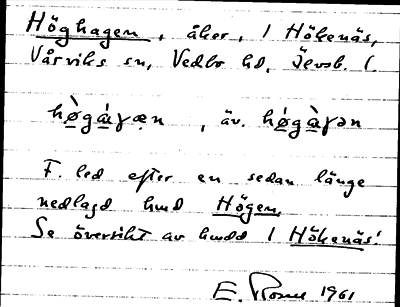 Höghagen, åker, i Hökenäs,
Vårviks sn, Vedbo hd, Älvsb. l.
hø̀gáγæn, äv. hǿgàγən
F. led efter en sedan länge
nedlagd hmd Högen.
Se översikt av hmdd i Hökenäs!
E. 1961